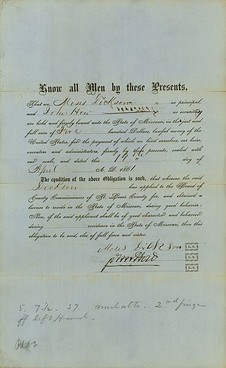 Know all Men by these Presents,
That we, Moses Dickson as principal
and John How as security
are held and firmly bound unto the State of Missouri, in the just and
full sum of Five hundred Dollars, lawful money of the
United States, for the payment of which we bind ourselves, our heirs,
executors and administrators, firmly by these presents, sealed with
our seals, and dated this day of
April A. D. 1861
The condition of the above Obligation is such, that whereas the said
Dickson has applied to the Board of
County Commissioners of St. Louis County for, and obtained a
license to reside in the State of Missouri, during good behavior:
Now, if the said applicant shall be of good character and behavior
during residence in the State of Missouri, then this
obligation to be void, else of full force and virtue.
Moses Dickson
John How
5. 7½. 37 2nd finger
off left Hand.